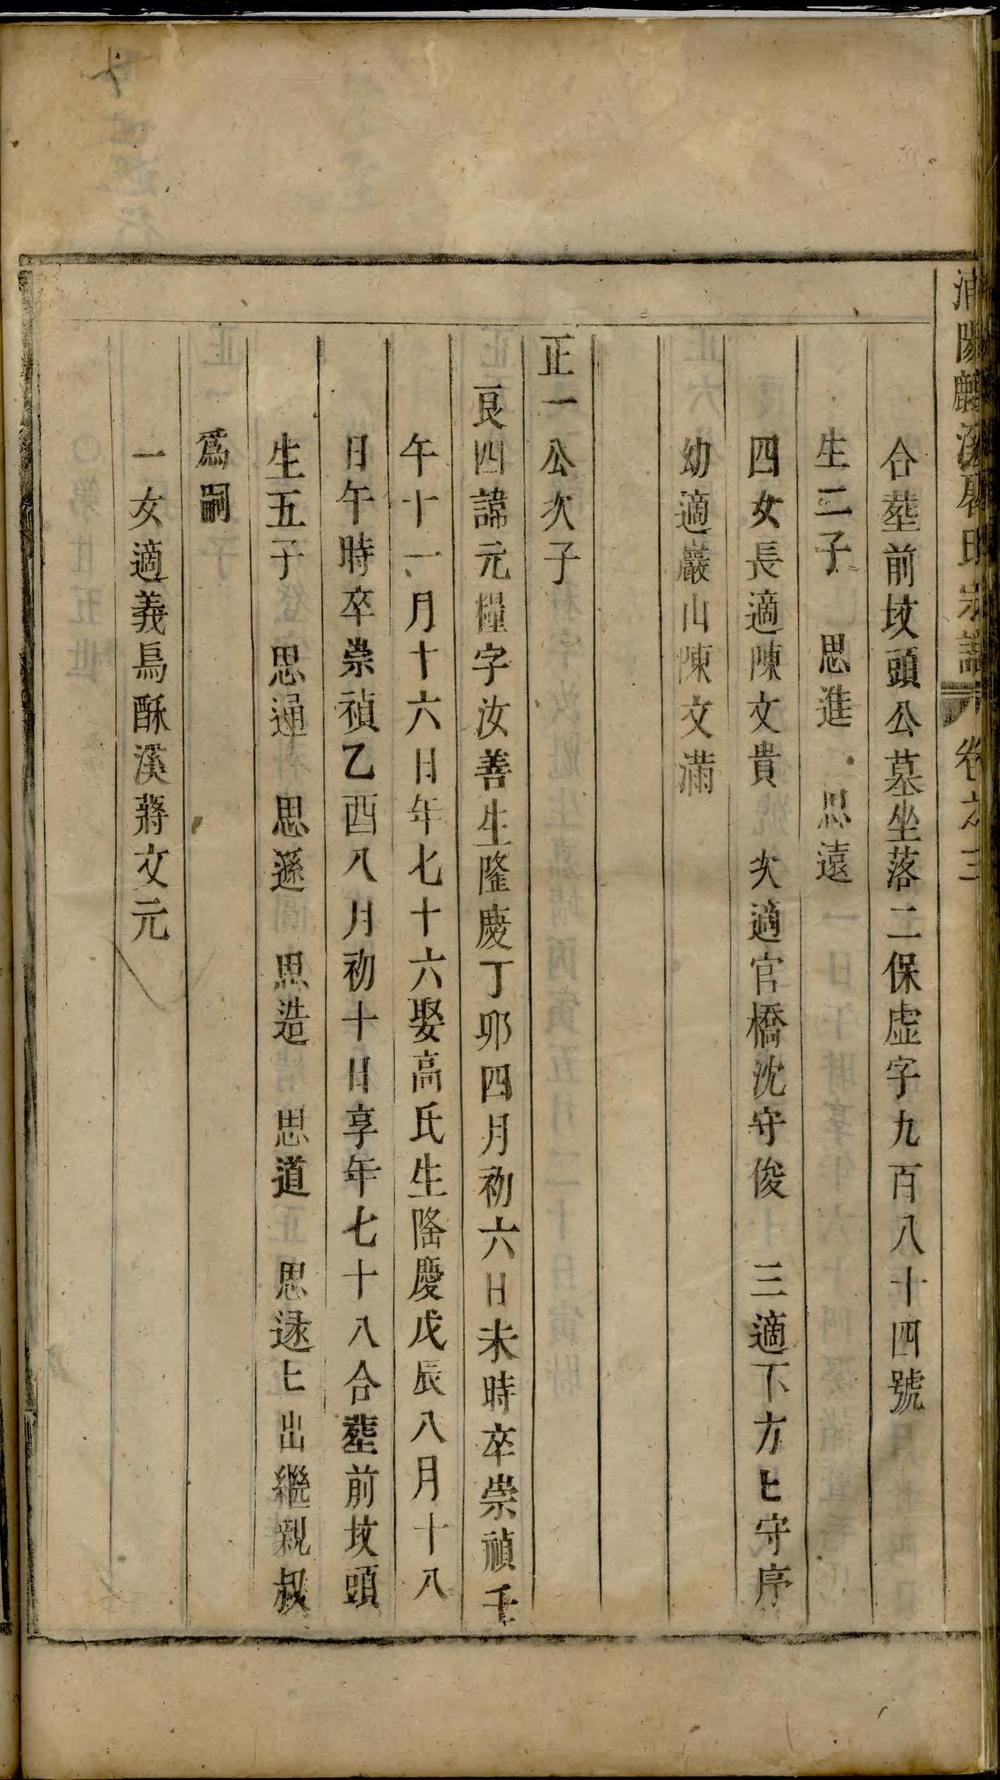 溪 氏宗譜 卷之三
合塟前坟頭公墓坐落二保虚字九百八十四號
生二子 思進 思遠
四女長適陳文貴 次適官橋沈守俊 三適下方匕守序
幼適巖山陳文滿
正一公次子
良四諱元糧字汝善生隆慶丁卯四月初六日未時卒崇禎壬
午十一月十六日年七十六娶高氏生隆慶戊辰八月十八
日午時卒崇禎乙酉八月初十日享年七十八合塟前坟頭
生五子 思通 思遜 思造 思道 思逯匕出繼親叔
爲嗣
一女適義烏酥溪蔣文元